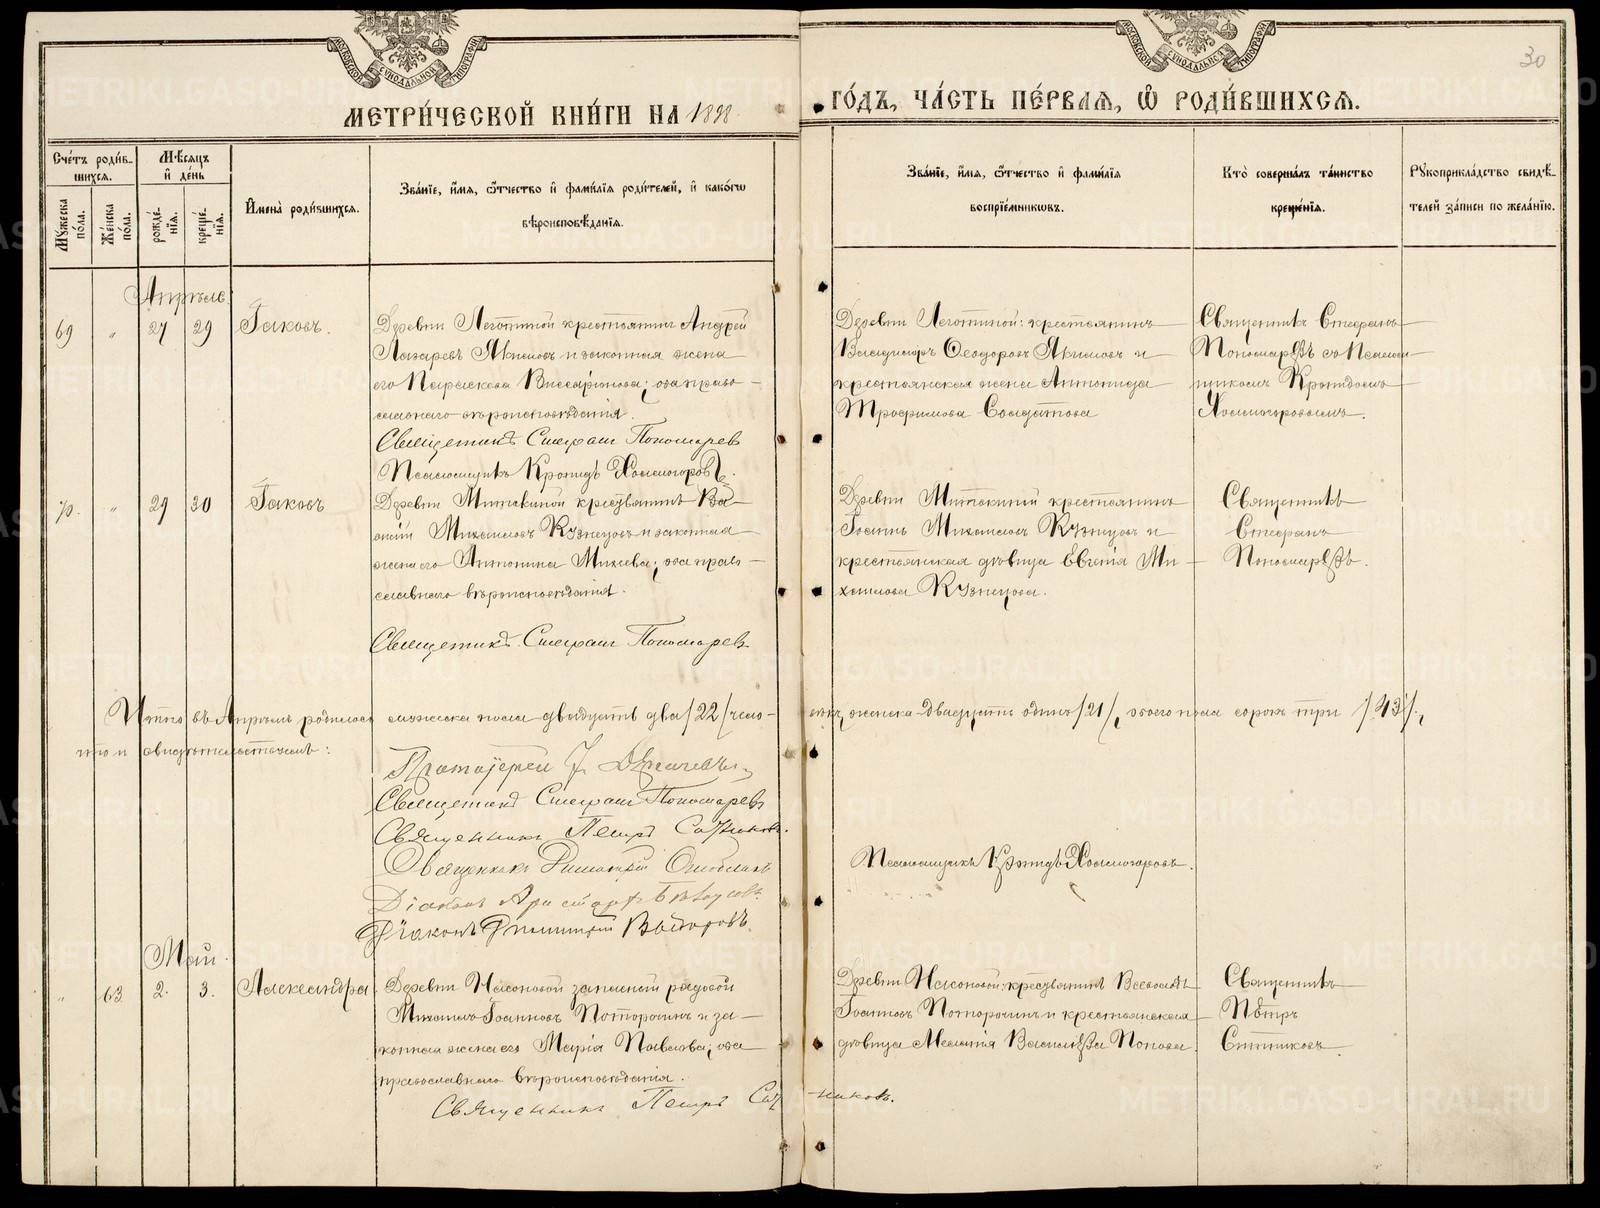 МОСКОВСКОЙ СѴНОДАЛЬНОЙ ТИПОГРАФІИ
МОСКОВСКОЙ СѴНОДАЛЬНОЙ ТИПОГРАФІИ
30
МЕТРИ́ЧЕСКОЙ КНИ́ГИ НА 1898 ГО́ДЪ, ЧА́СТЬ ПЕ́РВАѦ, Ѡ҆ РОДИ́ВШИХСѦ.
Сче́тъ роди́в-
шихсѧ.
Мꙋжеска по́ла.
Же́нска по́ла.
Мѣ́сѧцъ
и҆ де́нь
рожде́-
нїѧ.
креще́-
нїѧ.
И҆мена̀ роди́вшихсѧ.
Зва́нїе, и҆́мѧ, ѻ҆́тчество и҆ фами́лїѧ роди́телей, и҆ како́гѡ
вѣроисповѣ́данїѧ.
Зва́нїе, и҆́мѧ, ѻ҆́тчество и҆ фами́лїѧ
воспрїе́мникѡвъ.
Кто̀ соверша́лъ та́инство
креще́нїѧ.
Рꙋкоприкла́дство свидѣ́-
телей за́писи по жела́нїю.
Апрѣль
69 " 27 29 Іаковъ.
Деревни Леготиной крестьянинъ Андрей
Лазаревъ Якимовъ и законная жена
его Параскева Виссаріонова; оба право-
славнаго вѣроисповѣданія.
Священникъ Стефанъ Пономаревъ
Псаломщикъ Кронидъ Холмогоровъ.
Деревни Леготиной: крестьянинъ
Владиміръ Ѳеодоровъ Якимовъ и
крестьянская жена Антонида
Трофимова Солдатова
Священникъ Стефанъ
Пономаревъ съ Псалом-
щикомъ Кронидомъ
Холмогоровымъ.
70. " 29 30 Іаковъ
Деревни Митькиной крестьянинъ Ва-
силій Михаиловъ Кузнецовъ и законная
жена его Антонина Михеева; оба прав-
славнаго вѣроисповѣданія.
Священникъ Стефанъ Пономаревъ
Деревни Митькиной крестьянинъ
Іоаннъ Михаиловъ Кузнецовъ и
крестьянская дѣвица Евгенія Ми-
хаилова Кузнецова.
Священникъ
Стефанъ
Пономаревъ.
Итого въ Апрѣлѣ родилось мужеска пола двадцать два /22/ чело-вѣкъ, женска двадцать одинъ /21/, обоего пола сорокъ три /43/,
что и свидѣтельствуемъ:
Протоіерей
Священникъ Стефанъ Пономаревъ
Священникъ Петръ Ситниковъ.
Священникъ
Діаконъ
Діаконъ Димитрій
Псаломщикъ Кронидъ Холмогоровъ.
Май.
" 63 2. 3. Александра
Деревни Насоновой запасный рядовой
Михаилъ Іоанновъ Поторочинъ и за-
конная жена его Марія Павлова; оба
православнаго вѣроисповѣданія.
Священникъ Петръ Ситниковъ.
Деревни Насоновой: крестьянинъ Всеволодъ
Іоанновъ Поторочинъ и крестьянская
дѣвица Меланія Васильева Попова.
Священникъ
Петръ
Ситниковъ.
METRIKI.GASO-URAL.RU